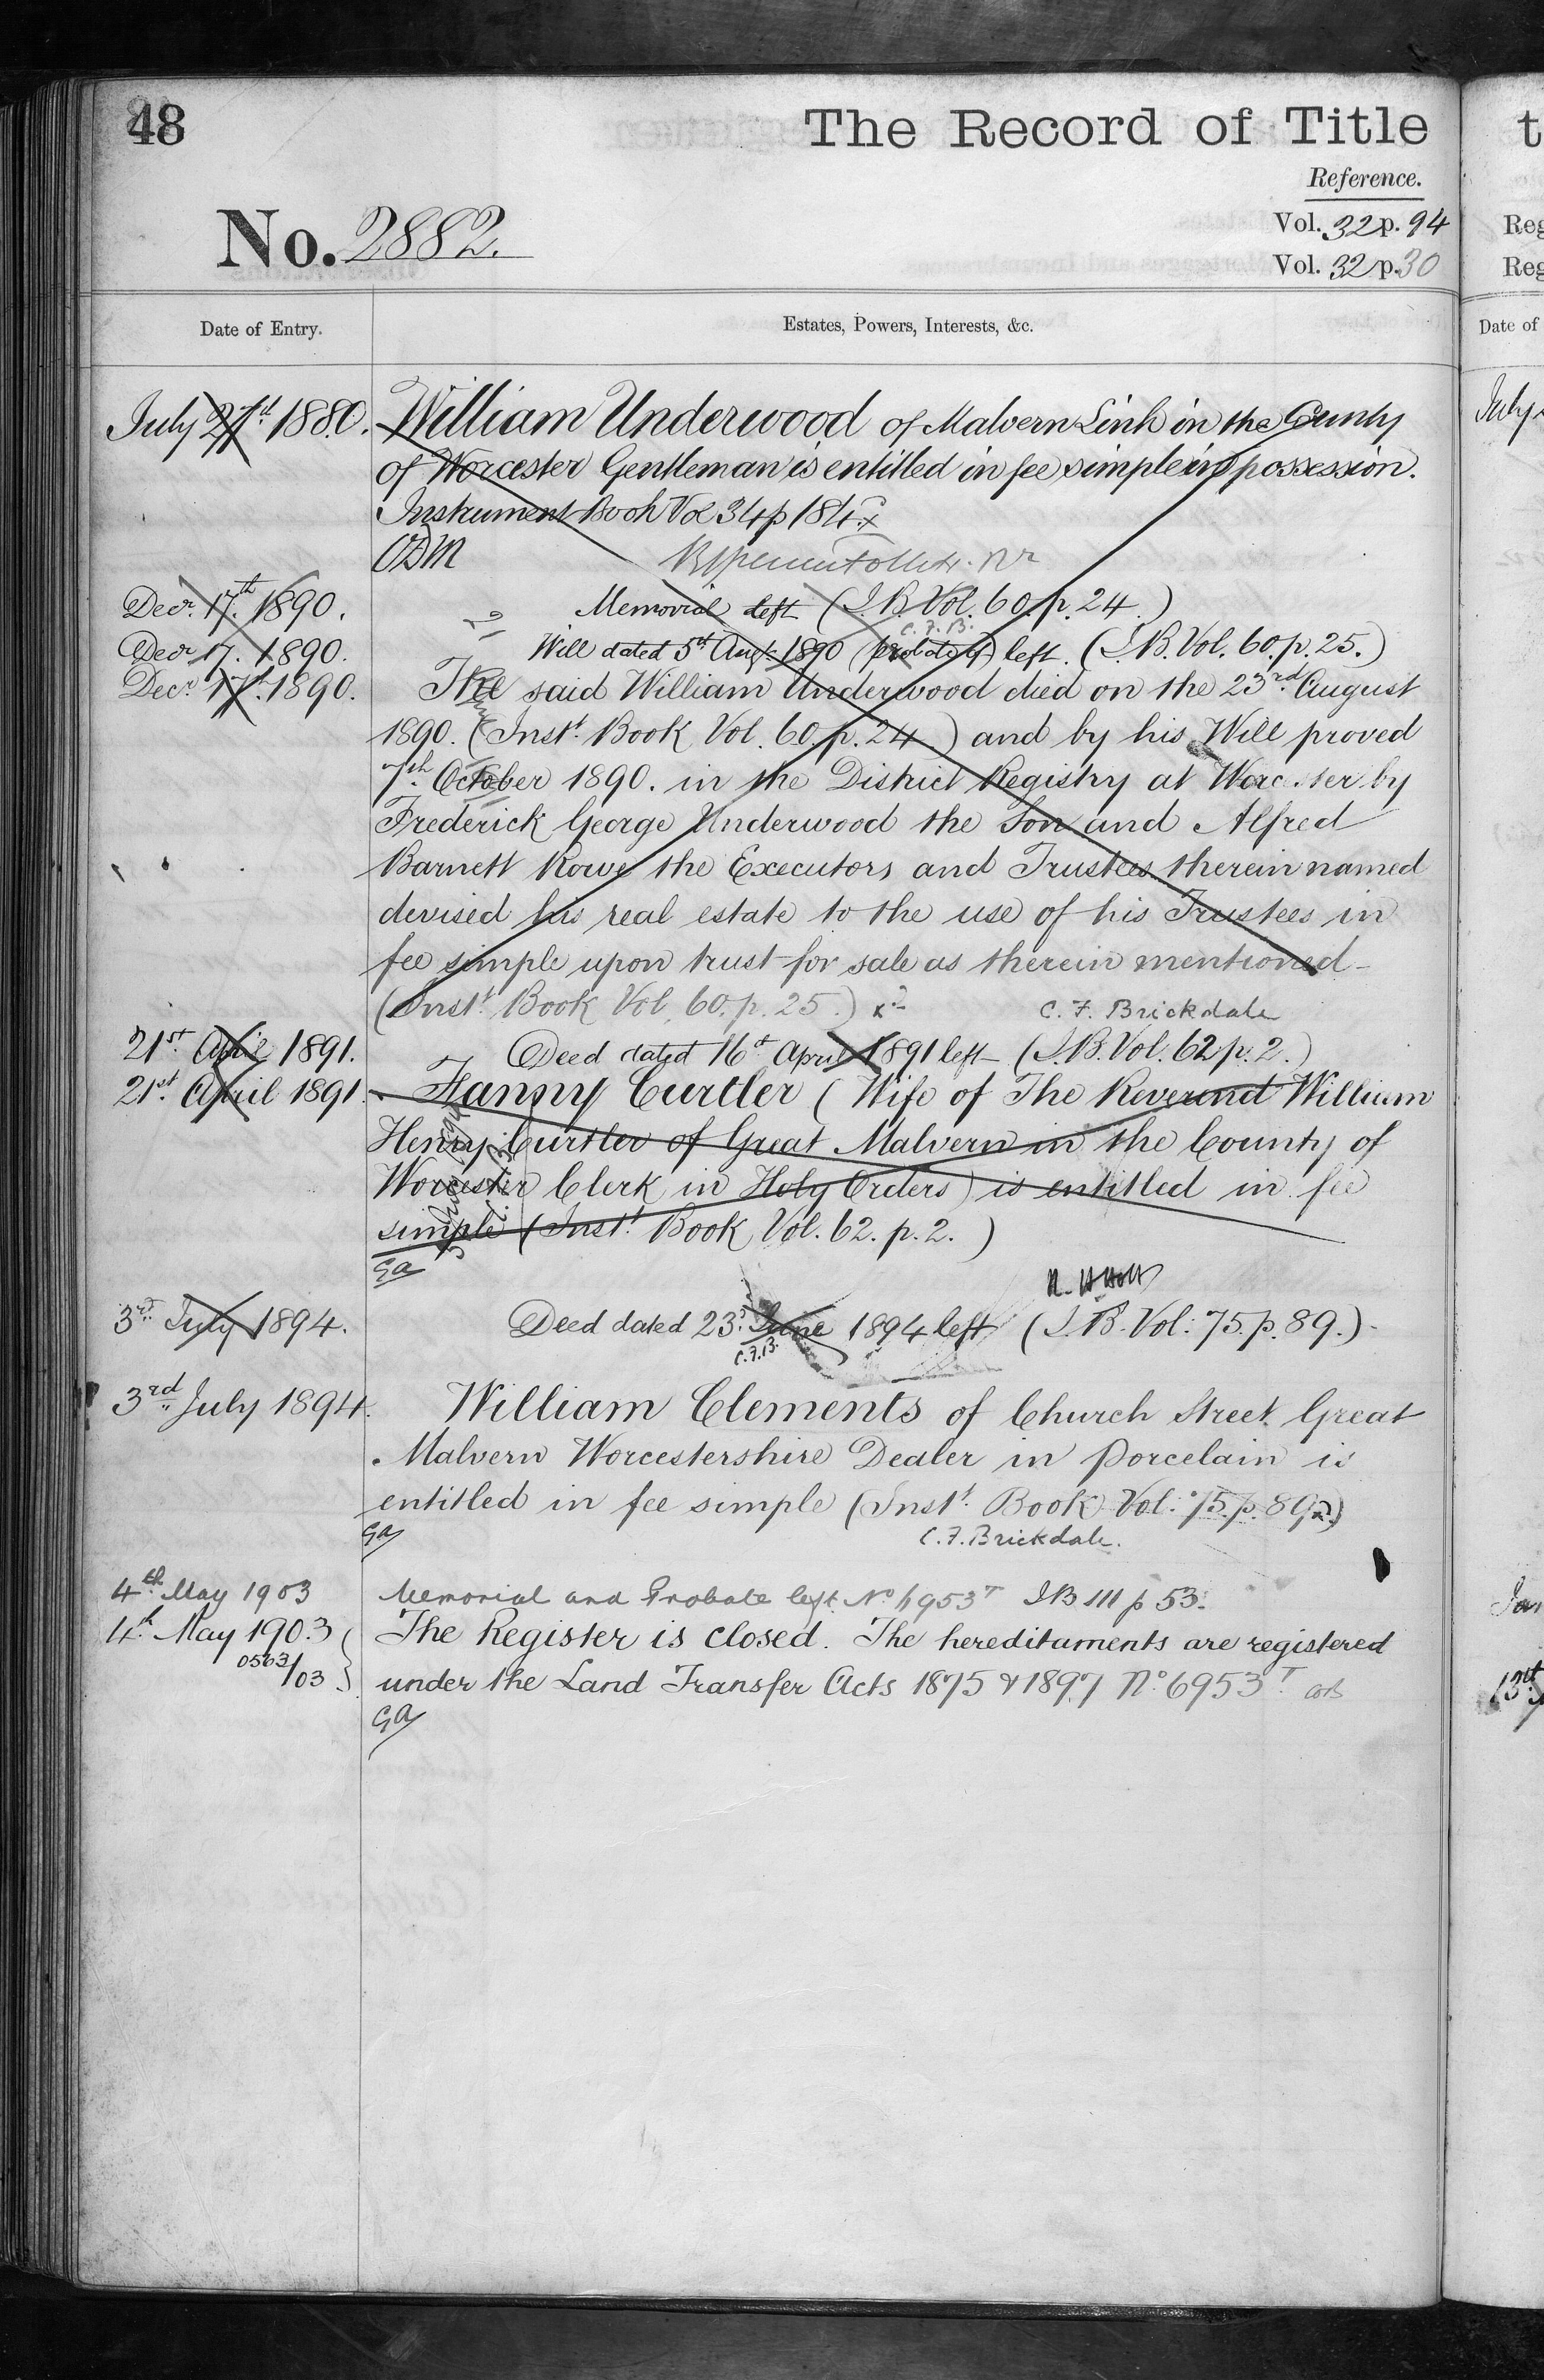 48
The Record of Title
Reference.
No. 2882.
Vol. 32 p. 94
Vol. 32 p. 30
Date of Entry.
Estates, Powers, Interests, &c.
July 27th 1880. William Underwood of Malvern Link in the County
of Worcester Gentleman is entitled in fee simple in possession.
Instrument Book Vol 34 p 184
Decr. 17th 1890. Memorial left (I.B. Vol. 60. p. 24.)
C.F.B.
Decr 17. 1890. Will dated 5th Augt. 1890 (probate of) left. (I.B. Vol. 60. p. 25.)
Decr. 17th 1890. The said William Underwood died on the 23rd. August
1890. (Inst. Book Vol. 60. p. 24.) and by his Will proved
7th. October 1890. in the District Registry at Worcester by
Frederick George Underwood the Son and Alfred
Barnett Rowe the Executors and Trustees therein named
devised his real estate to the use of his Trustees in
fee simple upon trust for sale as therein mentioned
(Inst. Book Vol. 60. p. 25.) C. F. Brickdale
21st. April 1891. Deed dated 16th April 1891 left (I.B. Vol. 62 p. 2.)
21st. April 1891. Fanny Curtler (Wife of The Reverend William
Henry Curtler of Great Malvern in the County of
Worcester Clerk in Holy Orders) is entitled in fee
simple (Inst. Book Vol. 62. p. 2.)
GA
3rd. July 1894. Deed dated 23d. June 1894 left (I.B. Vol: 75. p. 89.)
C.F.B.
3rd July 1894. William Clements of Church Street Great
Malvern Worcestershire Dealer in Porcelain is
entitled in fee simple (Inst. Book Vol: 75. p. 89.)
GA C.F. Brickdale.
4th. May 1903 Memorial and Probate left No 6953T IB 111 p 53.
4th. May 1903 The Register is closed. The hereditaments are registered
0563/03 under the Land Transfer Acts 1875 & 1897 No. 6953T.
GA
t
Reg
Reg
Date of
July